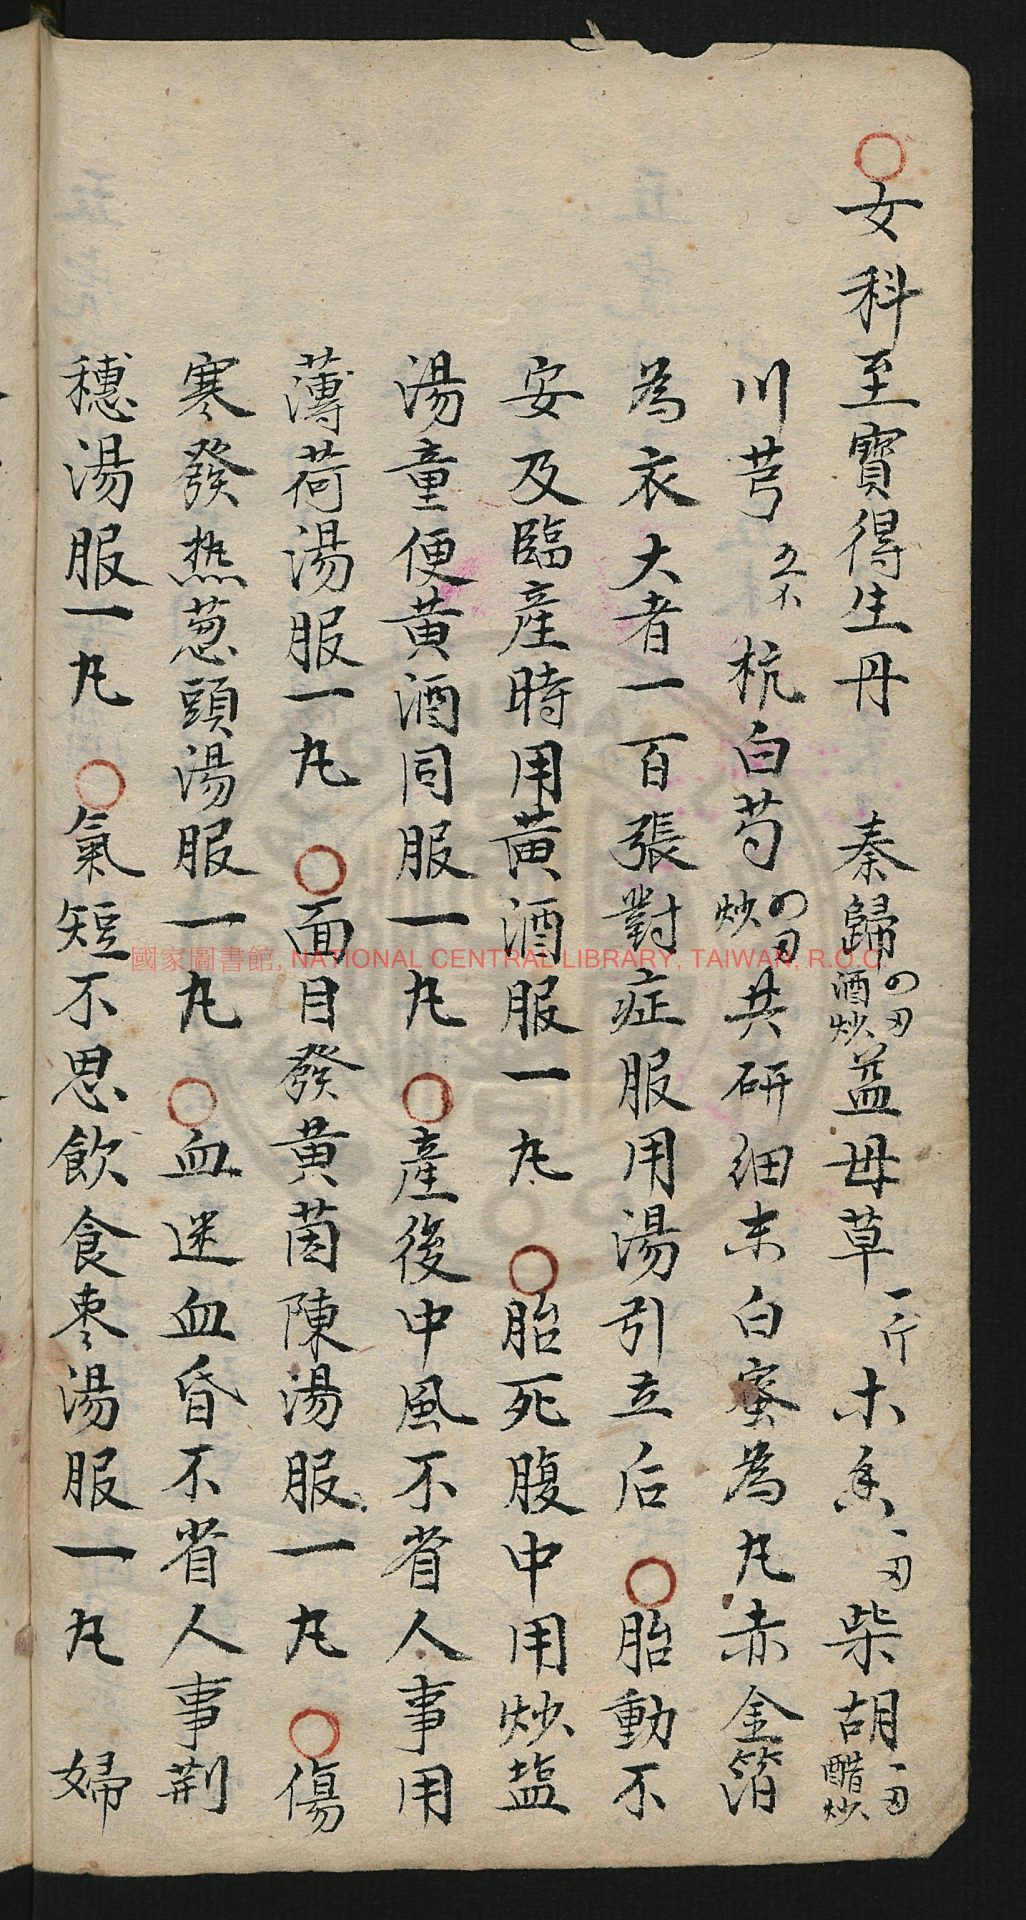 ○女科至寶得生丹　秦歸四刄酒炒益母草一斤木香一刄柴胡一刄醋炒
川芎五个杭白芍四刄炒共研細末白蜜為丸赤金箔
為衣大者一百張對症服用湯引立后○胎動不
安及臨產時用黃酒服一丸○胎死腹中用炒盐
湯童便黃酒同服一丸○產後中風不省人事用
薄荷湯服一丸○面目發黃茵陳湯服一丸○傷
寒發热葱頭湯服一丸○血迷血昏不省人事荆
穗湯服一丸○氣短不思飲食枣湯服一丸　婦
國家圖書館, NATIONAL CENTRAL LIBRARY, TAIWAN, R.O.C